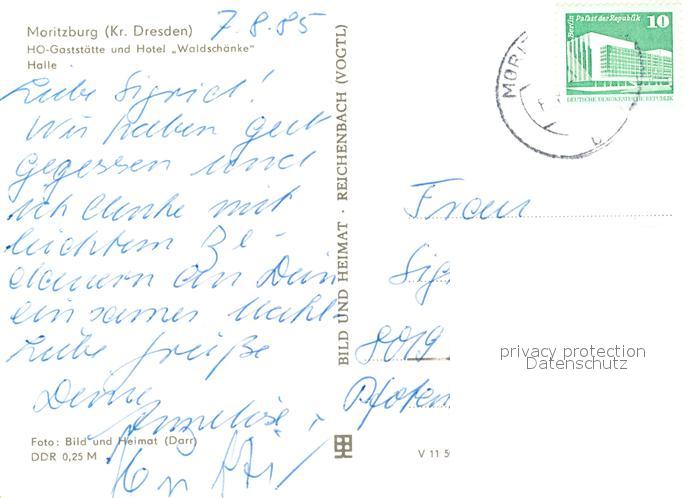 Moritzburg (Kr. Dresden) 7.8.85
HO-Gaststätte und Hotel „Waldschänke"
Halle
Liebe Sigrid!
Wir haben gut
gegessen und
ich denke mit
leichtem Be-
dauern an Dein
einsames Mahl.
Liebe Grüße
Deine
Anneliese
Foto: Bild und Heimat (Darr)
DDR 0,25 M
BILD UND HEIMAT · REICHENBACH (VOGTL)
V 11 5
Berlin Palast der Republik 10
DEUTSCHE DEMOKRATISCHE REPUBLIK
MORI
Frau
Sig
8019
privacy protection
Datenschutz